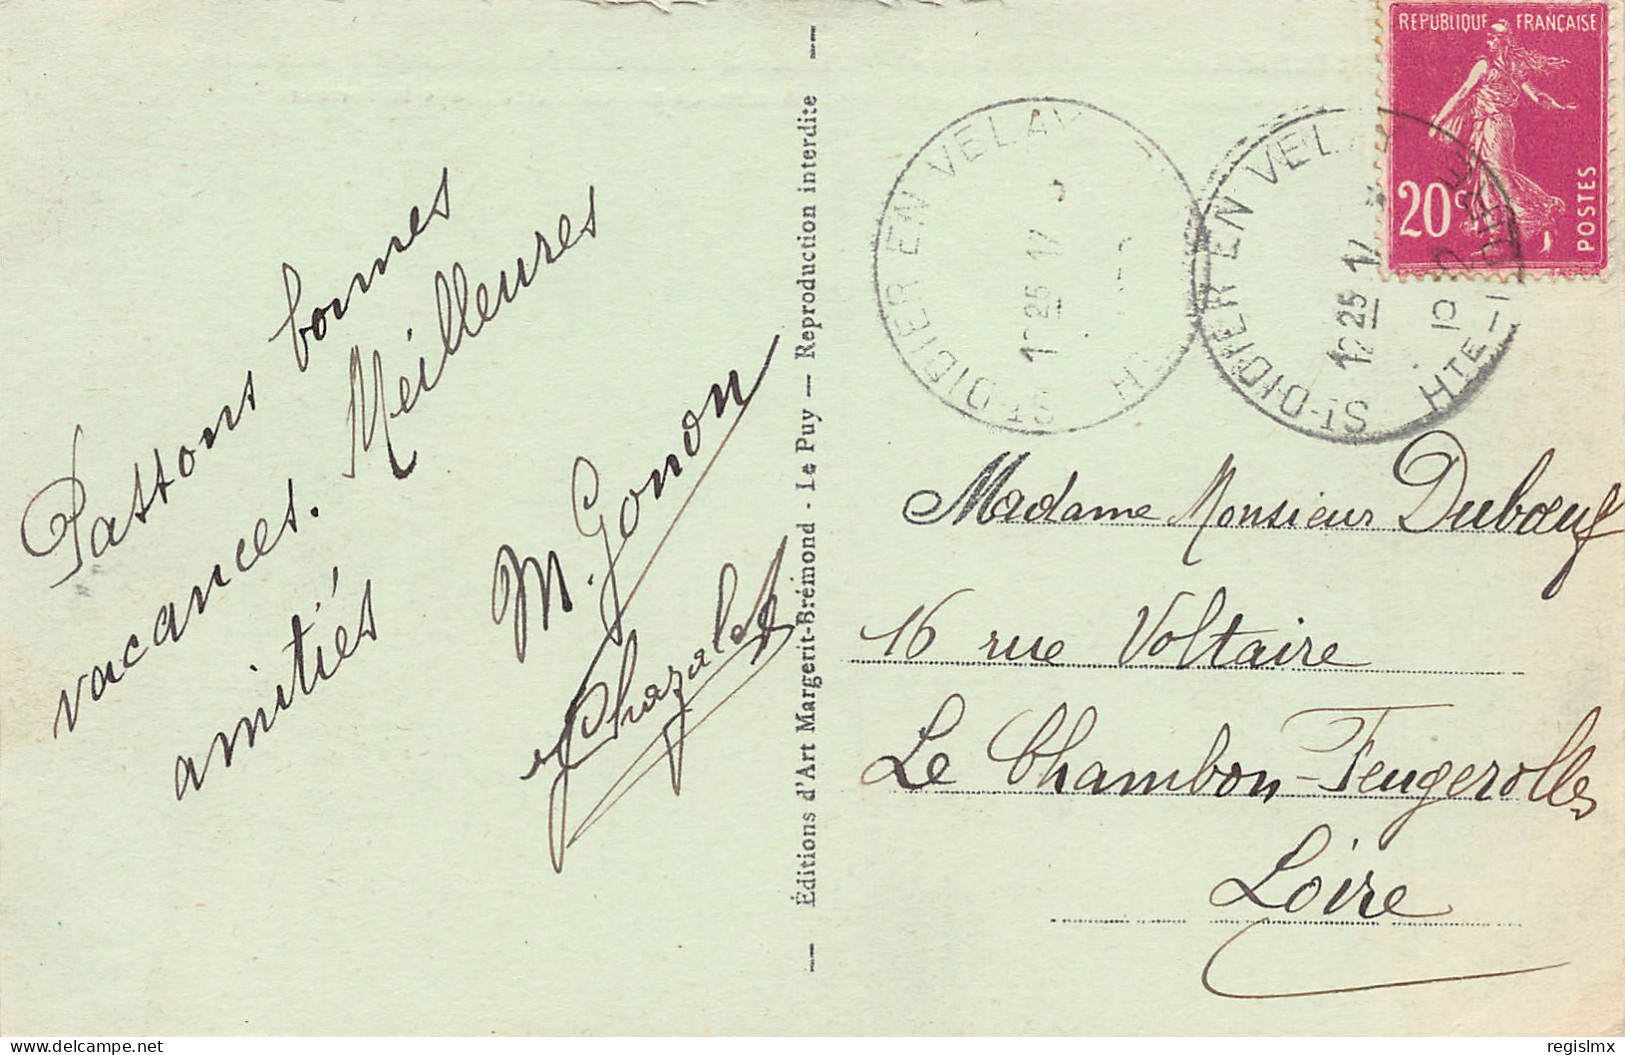 Passons bonnes
vacances. Meilleures
amitiés
M. Gonon
Chazalet
Éditions d'Art Margerit-Brémond - Le Puy — Reproduction interdite
ST-DIDIER EN VELAY
1225 17
ST-DIDIER EN VELAY
1225 17
HTE-LOIRE
REPUBLIQUE FRANÇAISE
20c
POSTES
Madame Monsieur Dubœuf
16 rue Voltaire
Le Chambon-Feugerolles
Loire
delcampe.net
regislmx